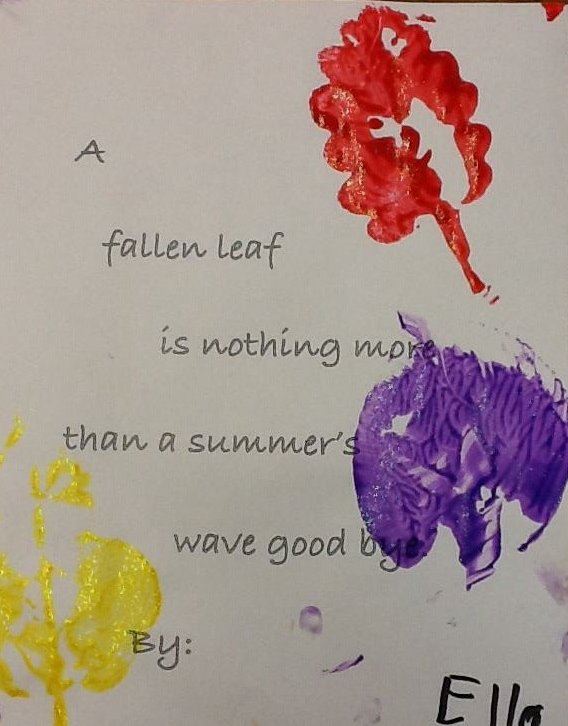 A
fallen leaf
is nothing more
than a summer's
wave good bye.
By:
Ella